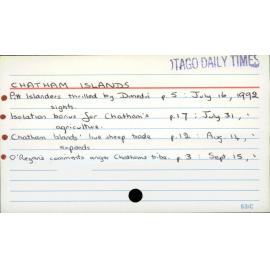 OTAGO DAILY TIMES
CHATHAM ISLANDS
Pitt Islanders thrilled by Dunedin p.5 : July 16, 1992
sights.
Isolation bonus for Chatham's p.17 : July 31, "
agriculture.
Chatham Islands' live sheep trade p.12 : Aug. 14, "
expands
O'Regan's comments anger Chathams tribe. p.3 : Sept. 15, "